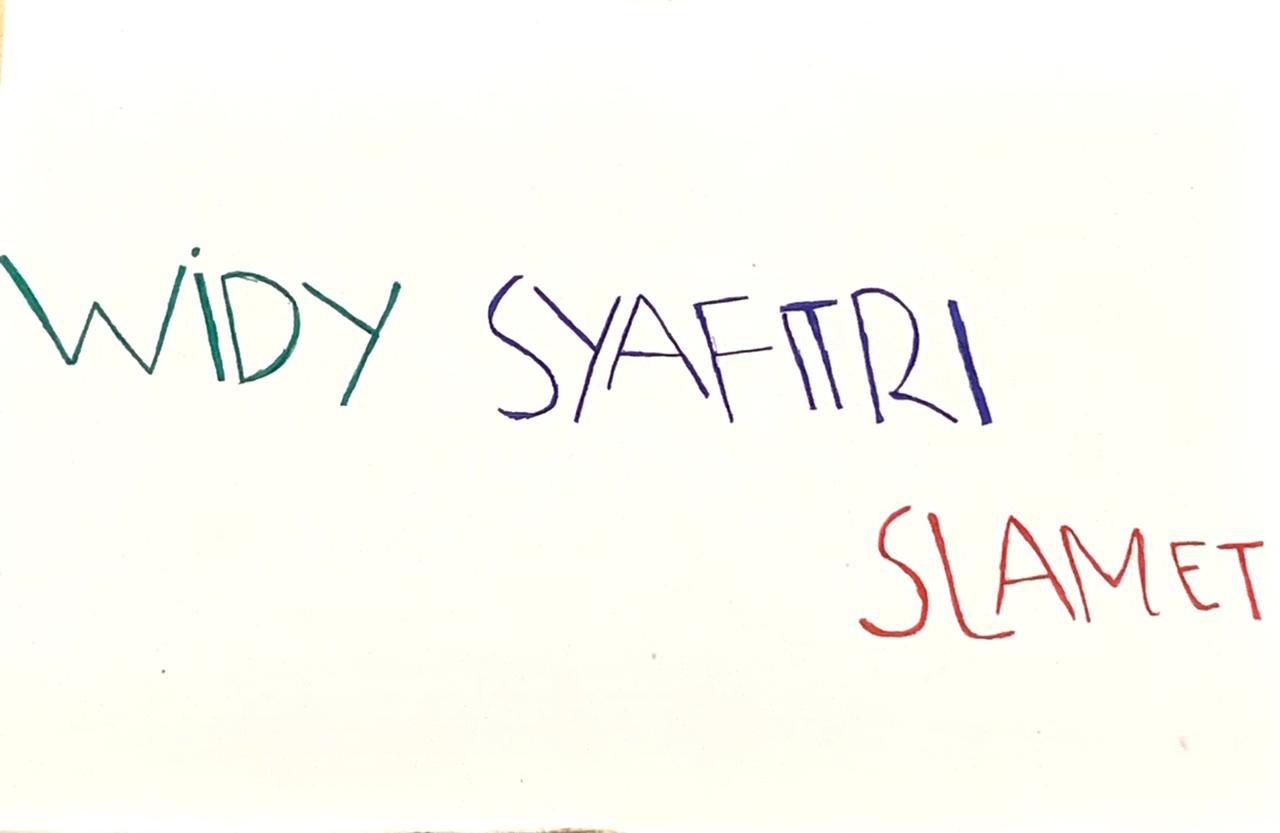 WiDY SYAFITRI
SLAMET